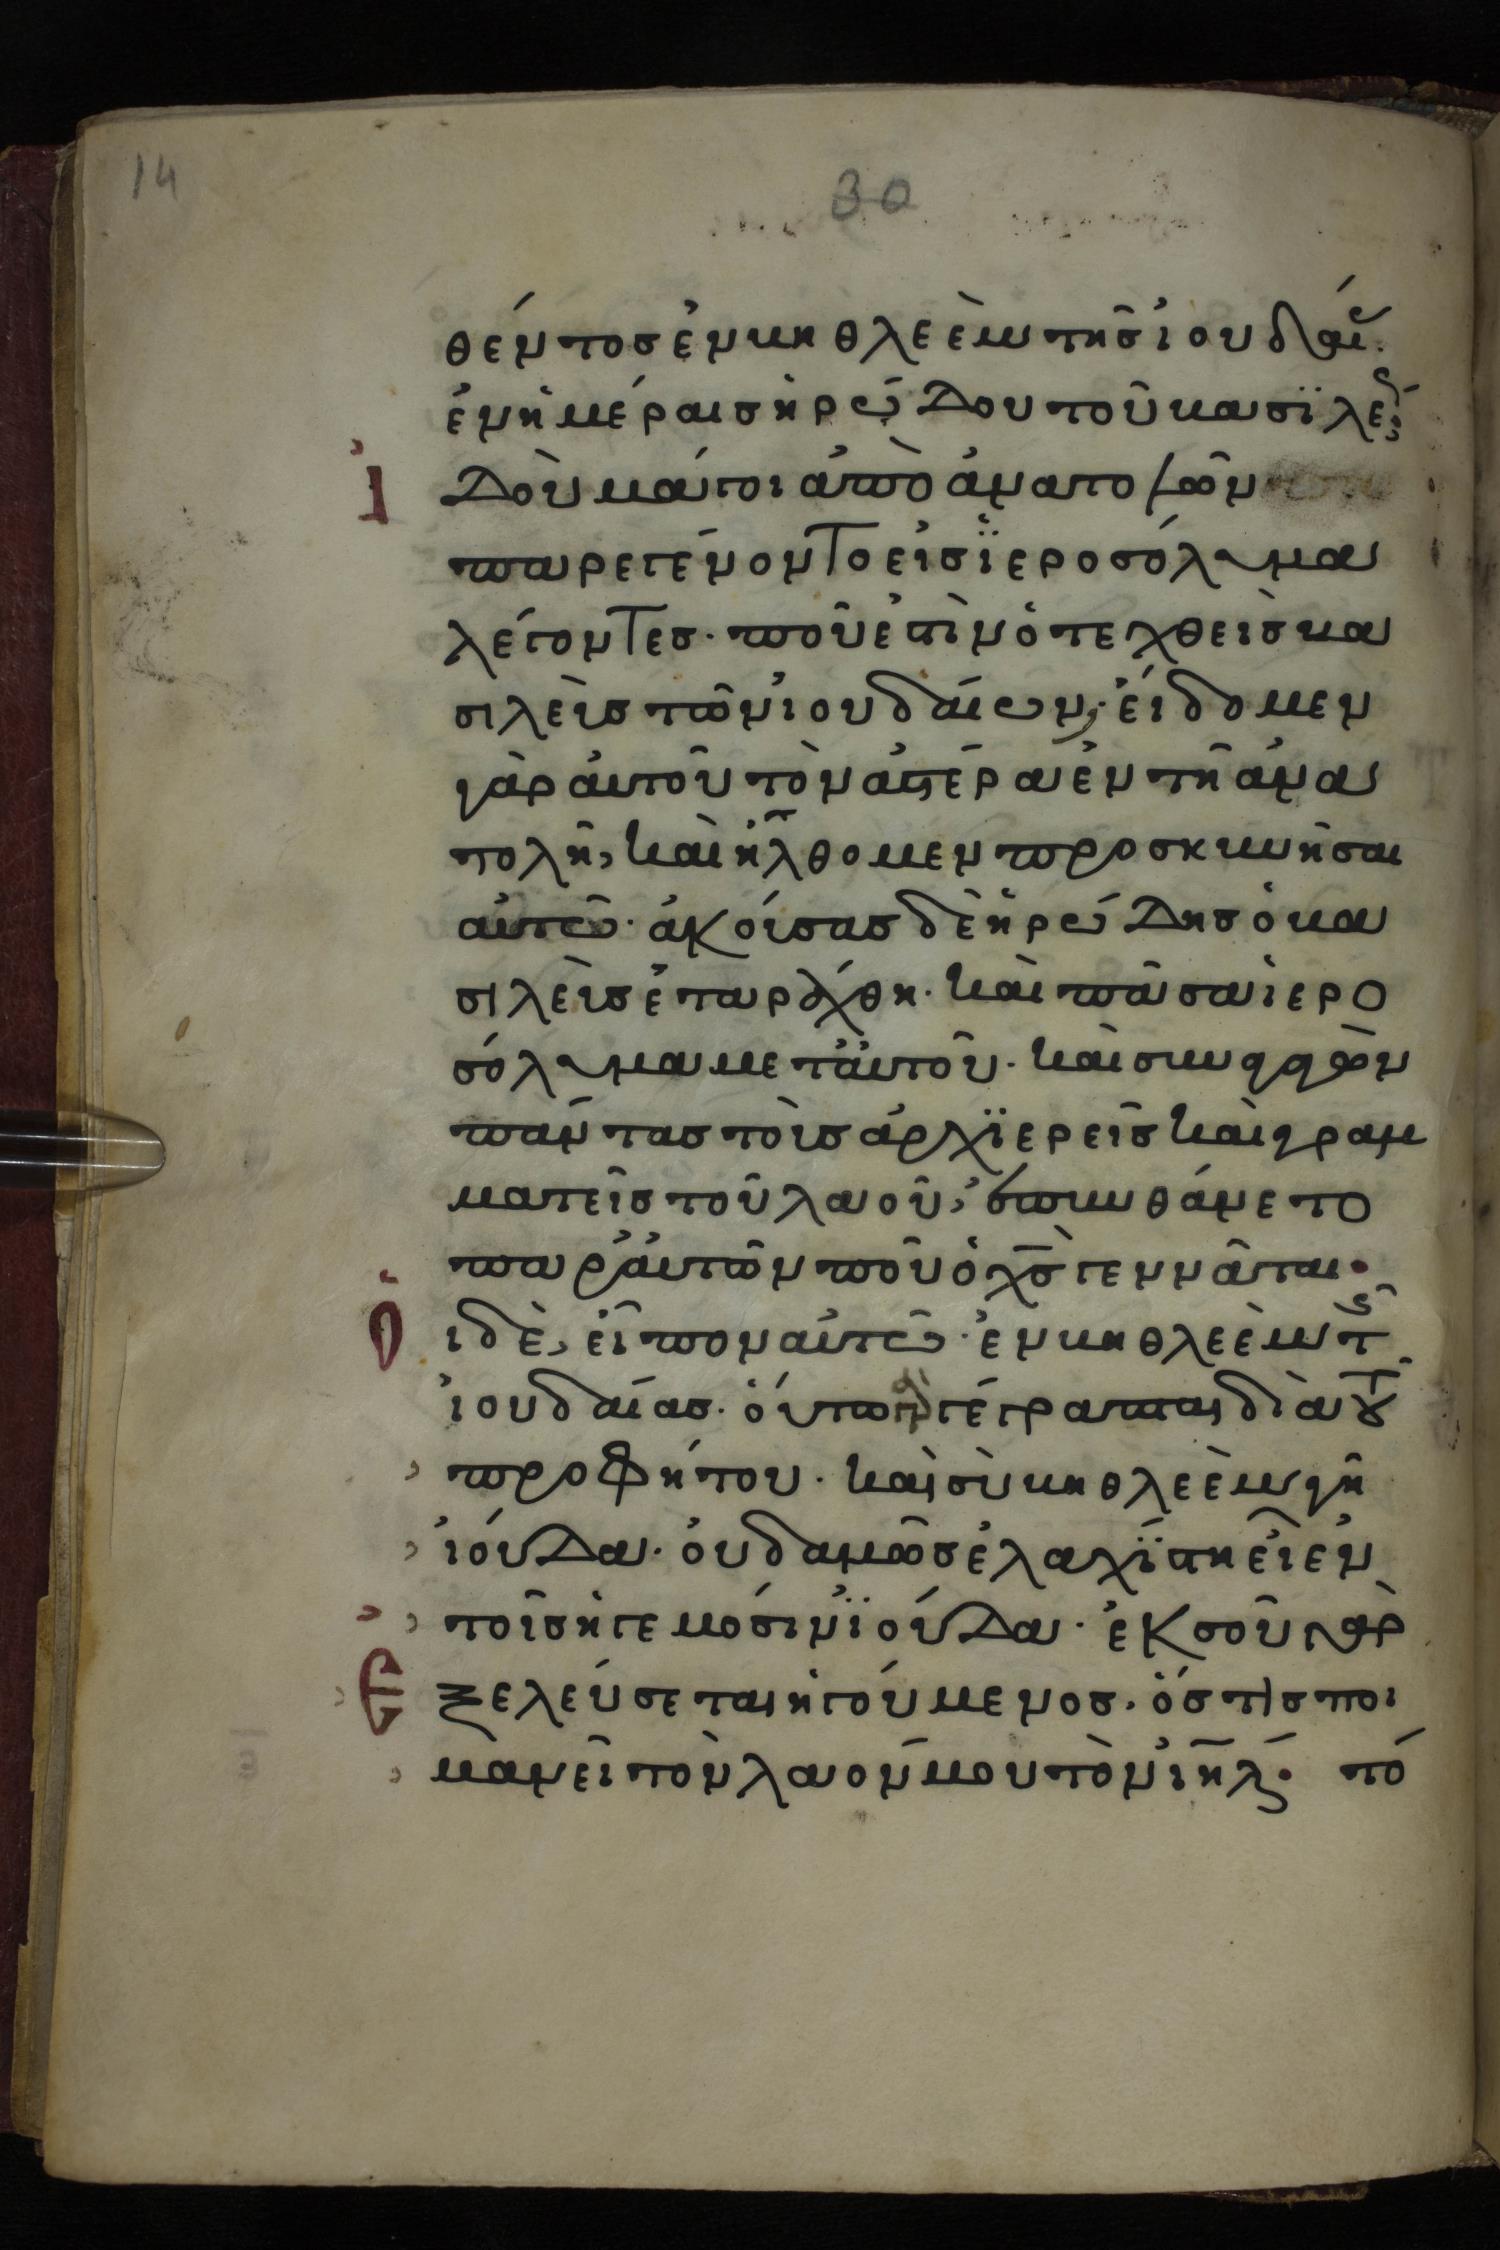 14
30
θέντος ἐν βηθλεὲμ τῆς ἰουδαί
ἐν ἡμέραις ἡρώδου τοῦ βασϊλέ
ἰδοὺ μάγοι ἀπὸ ἀνατολῶν
παρεγένοντο εἰς ϊεροσόλυμα
λέγοντες· ποῦ ἐστὶν ὁ τεχθεὶς βα
σιλεὺς τῶν ἰουδαίων; εἴδομεν
γὰρ ἀυτοῦ τὸν ἀστέρα ἐν τῆ ἀνα
τολῆ, καὶ ἤλθομεν προσκυνῆσαι
αὐτῶ· ἀκούσας δὲ ἡρώδης ὁ βα
σιλεὺς ἐταράχθη· καὶ πᾶσα ἱερο
σόλυμα μετ' ἀυτοῦ· καὶ συναγαγὼν
πάντας τοὺς ἀρχϊερεῖς καὶ γραμ
ματεῖς τοῦ λαοῦ, ἐπυνθάνετο
παρ' ἀυτῶν ποῦ ὁ χς γεννᾶται·
ὁι δὲ, εἶπον αὐτῶ· ἐν βηθλεὲμ τῆς
ἰουδαίας· ὅυτω γὰρ γέγραπται διὰ τοῦ
προφήτου· καὶ σὺ βηθλεὲμ γῆ
ἰούδα· ὀυδαμῶς ἐλαχϊστη εἶ ἐν
τοῖς ἡγεμόσιν ϊούδα· ἐκ σοῦ γὰρ
ἐξελεύσεται ἡγούμενος· ὅστις ποι
μανεῖ τὸν λαόν μου τὸν ἰηλ· τό